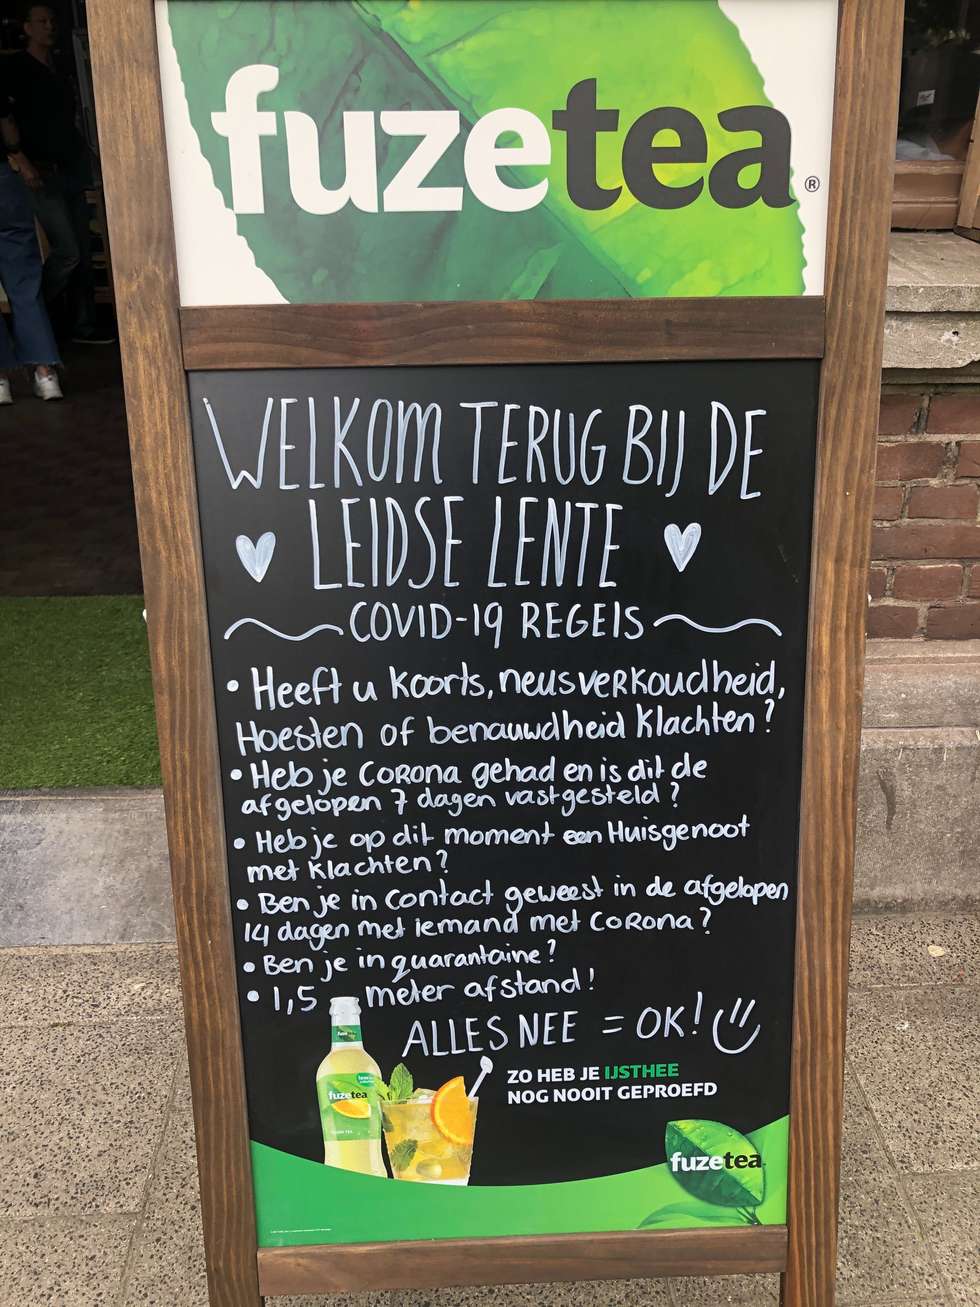 fuzetea®
WELKOM TERUG BIJ DE
LEIDSE LENTE
COVID-19 REGELS
• Heeft u koorts, neusverkoudheid,
Hoesten of benauwdheid klachten?
• Heb je corona gehad en is dit de
afgelopen 7 dagen vastgesteld?
• Heb je op dit moment een Huisgenoot
met klachten?
• Ben je in contact geweest in de afgelopen
14 dagen met iemand met corona?
• Ben je in quarantaine?
• 1,5 meter afstand!
ALLES NEE = OK!
ZO HEB JE IJSTHEE
NOG NOOIT GEPROEFD
fuzetea
fuzetea